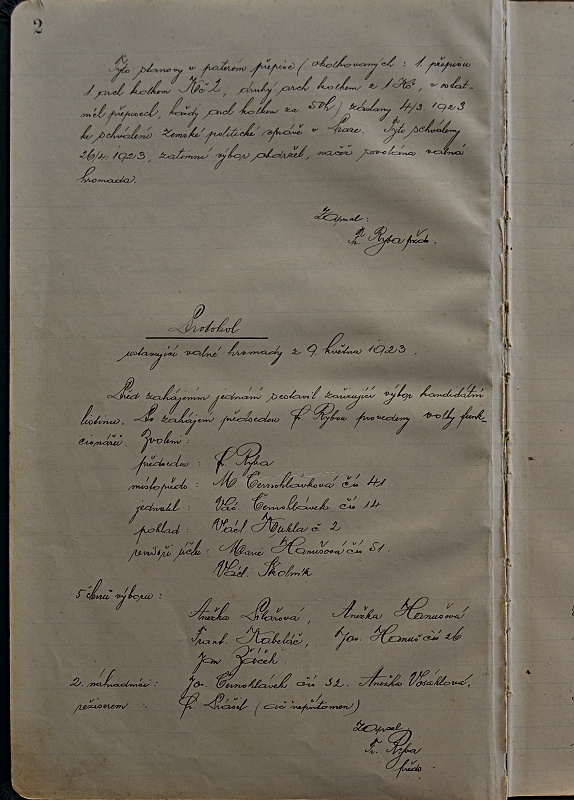 2
Tyto stanovy v paterem přepise (okolkovaných: 1. přepisu
1 arch kolkem Kč 2, druhý arch kolkem z 1 Kč, v ostat-
ních přepisech, každý arch kolkem za 50h) zadány 4/3. 1923
ke schválení Zemské politické správě v Praze. Tyto schváleny
26/4. 1923, zatimní výbor obdržel, načež povolána valná
hromada.
Zapsal:
Fr. Ryba předs.
Protokol
ustavující valné hromady z 9. května 1923.
Před zahájením jednání sestavil zařizující výbor kandidátní
listinu. Po zahájení předsedou F. Rybou provedeny volby funk-
cionářů. Zvoleni:
předsedou: F. Ryba
místopředs: M. Černohlávková čís 41
jednatel: Vác. Černohlávek čís 14
poklad: Václ. Kukla č 2
revisoři účtů: Marie Hanušová čís 51.
Václ. Školník
5 členů výboru:
Anežka Pilařová, Anežka Hanušová
Frant. Kabeláč, Jos. Hanuš čís 26
Jan Žáček.
2. náhradníci: Jos. Černohlávek čís 32. Anežka Vosáhlová.
režiserem F. Prášil (ač nepřítomen)
Zapsal
Fr. Ryba
předs.